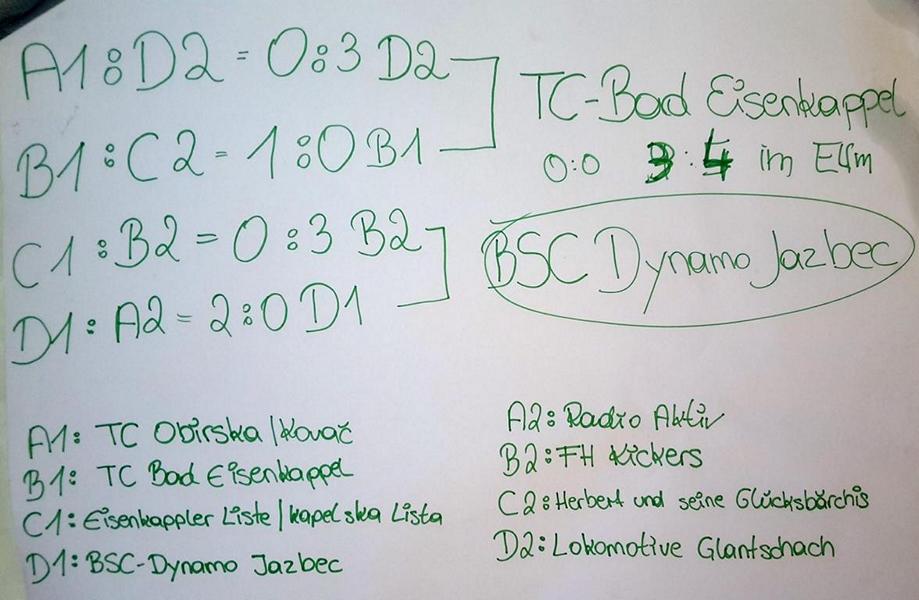 A1:D2 = 0:3 D2
B1:C2 = 1:0 B1
C1:B2 = 0:3 B2
D1:A2 = 2:0 D1
TC-Bad Eisenkappel
0:0 3:4 im Elfm
BSC Dynamo Jazbec
A1: TC Obirska/Kovač
B1: TC Bad Eisenkappel
C1: Eisenkappler Liste/kapelska Lista
D1: BSC-Dynamo Jazbec
A2: Radio Aktiv
B2: FH Kickers
C2: Herbert und seine Glücksbärchis
D2: Lokomotive Glantschach